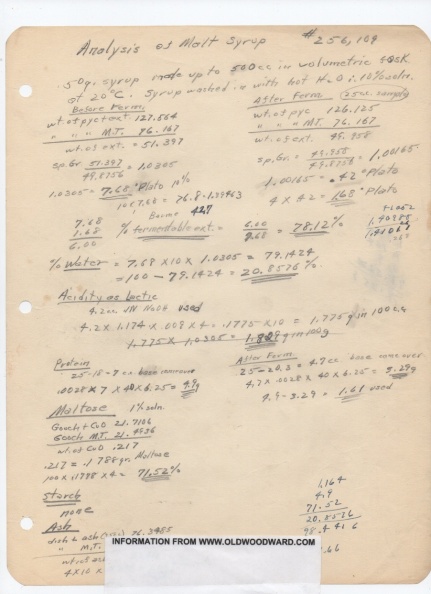 Analysis of Malt Syrup # 256,109
50g. syrup made up to 500cc in volumetric flask
at 20°C. Syrup washed in with hot H2O: 10% soln.
Before Ferm.
wt. of pyc + ext 127.564
" " " M.T. 76.167
wt. of ext. = 51.397
sp. Gr. 51.397 / 49.8756 = 1.0305
1.0305 = 7.68 °Plato 10%
10 x 7.68 = 76.8 =
Baume 42.7
After Ferm. (25cc. sample)
wt. of pyc 126.125
" " " M.T. 76.167
wt. of ext. 49.958
sp. Gr. = 49.958 / 49.8758 = 1.00165
1.00165 = .42 °Plato
4 x .42 = 1.68 °Plato
7.68
1.68
6.00
% fermentable ext. = 6.00 / 7.68 = 78.12%
% Water = 7.68 x 10 x 1.0305 = 79.1424
= 100 - 79.1424 = 20.8576%
Acidity as lactic
4.2cc .1N NaOH used
4.2 x 1.174 x .009 x 4 = .1775 x 10 = 1.775g in 100cc
1.775 x 1.0305 = in 100g
Protein
25-18 = 7cc base
.0028 x 7 x 40 x 6.25 = 4.9g
After Ferm.
25-20.3 = 4.7cc base
4.7 x .0028 x 40 x 6.25 = 3.29g
4.9 - 3.29 = 1.61 used
Maltose 1% soln.
Gooch + CuO 21.7106
Gooch M.T. 21.4936
wt. of CuO .217
.217 = .1788 gr. Maltose
100 x .1788 x 4 = 71.52%
Starch
none
Ash
dish & ash 76.3485
" M.T.
wt. of ash
4 x 10 x
1.164
4.9
71.52
20.8576
98.4416
INFORMATION FROM WWW.OLDWOODWARD.COM